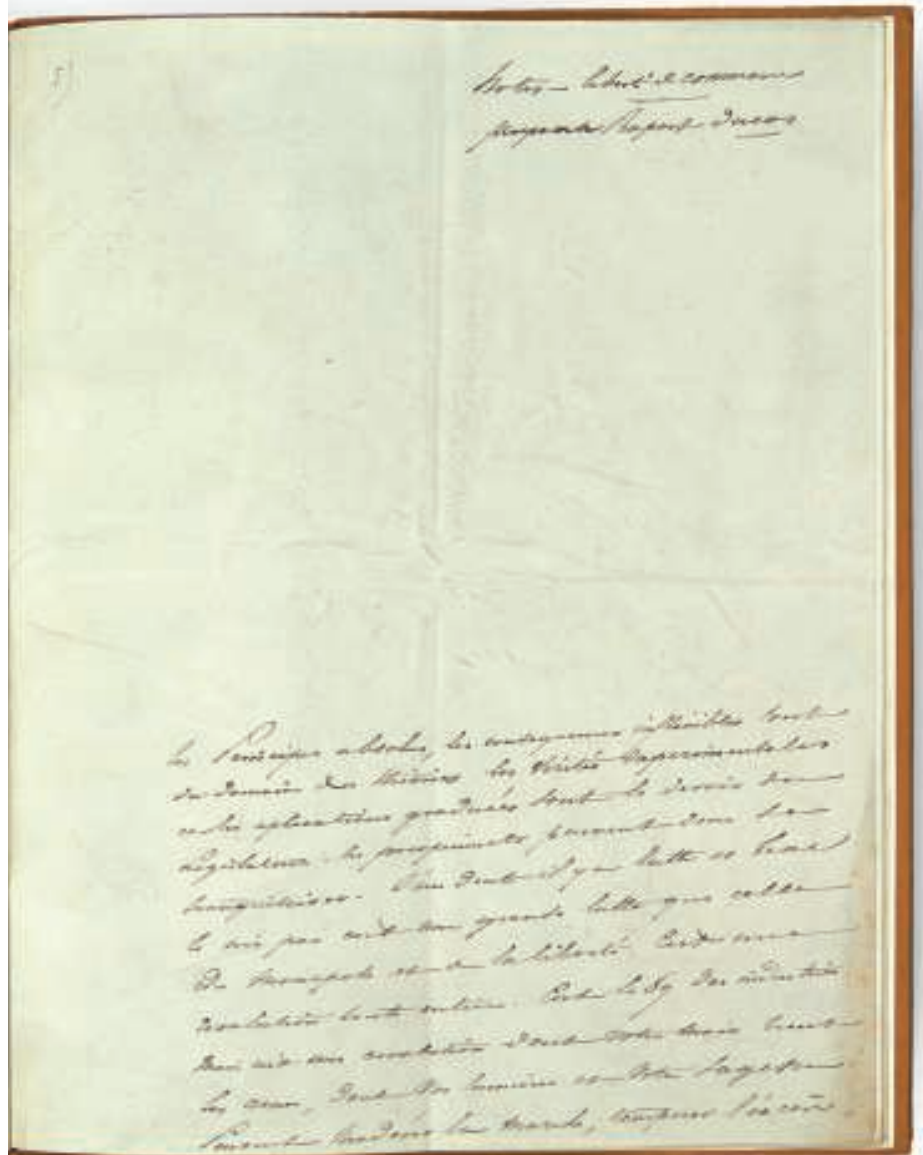 5)
Notes – liberté de commerce
Rapport Ducos
les Principes absolus, les conséquences inflexibles sont
du domaine des théories les vérités expérimentales
et les aplications graduées sont le devoir du
législateur. les propriétaires peuvent donc se
tranquilliser. Sans doute il y a lutte et beau
je ne sais pas c'est une grande lutte que celle
du monopole et de la liberté. C'est une
révolution toute entière. C'est le 89 des industries
mais une révolution dont votre main tient
les , dont vos lumières et votre sagesse
peuvent modérer la marche,